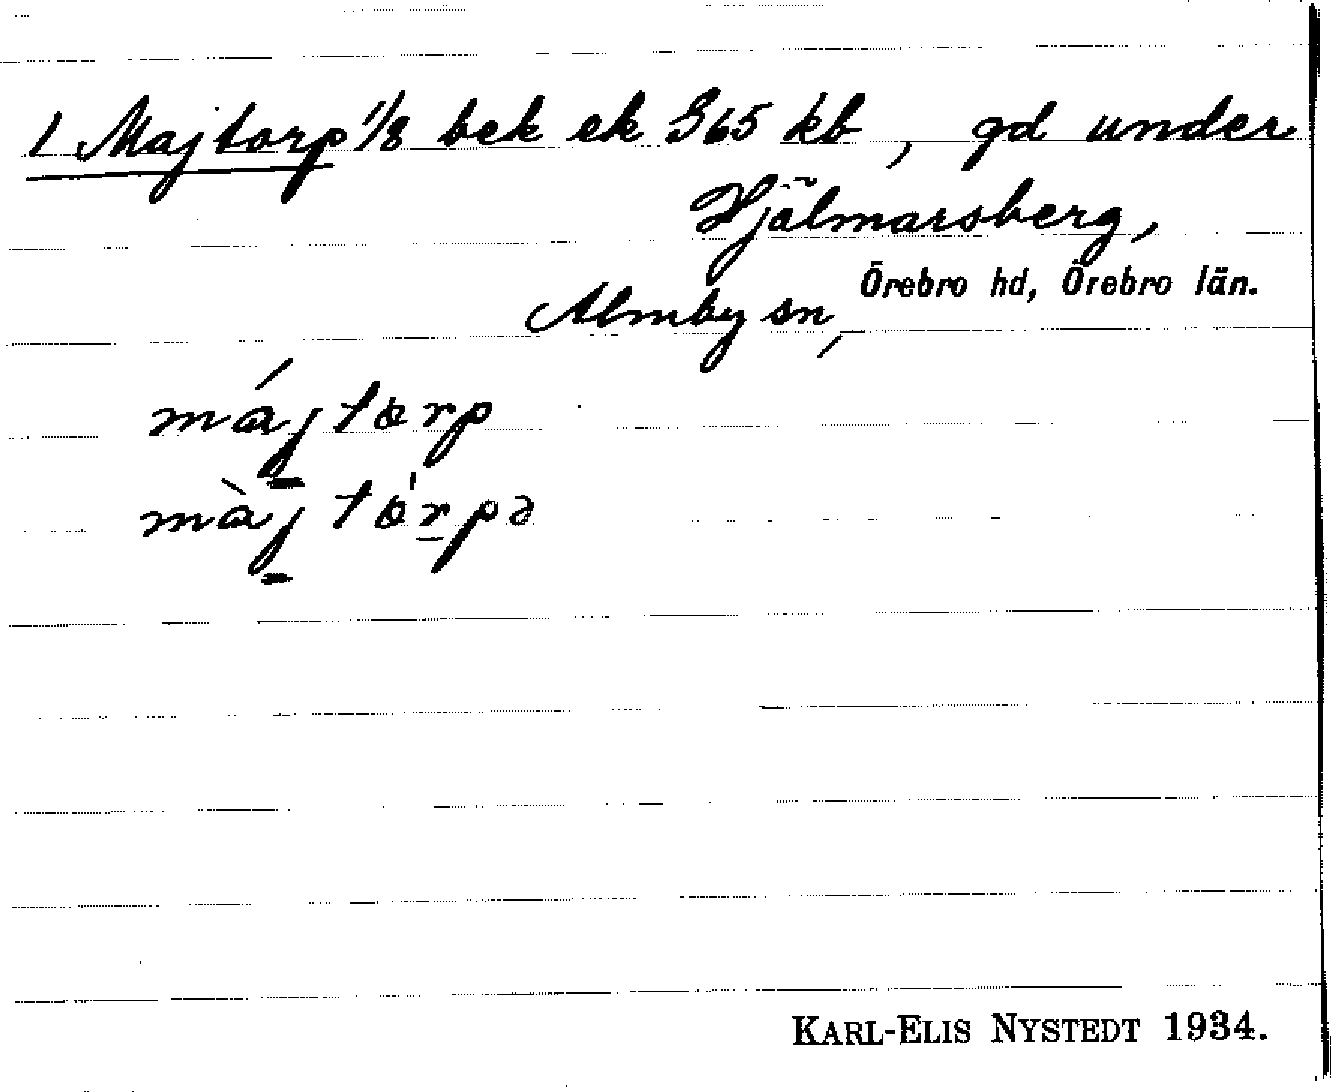 1 Majtorp 1/8 bek ek S65 kb, gd under
Hjälmarsberg,
Almby sn, Örebro hd, Örebro län.
májtorp
màjtórpə
KARL-ELIS NYSTEDT 1934.